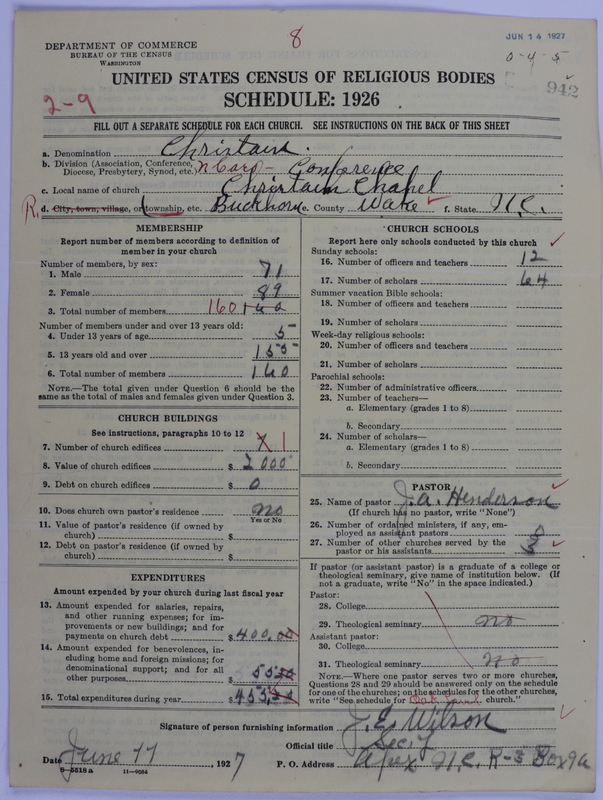 JUN 14 1927
8
DEPARTMENT OF COMMERCE
BUREAU OF THE CENSUS
WASHINGTON
0-4-5
942
UNITED STATES CENSUS OF RELIGIOUS BODIES
2-9
SCHEDULE: 1926
FILL OUT A SEPARATE SCHEDULE FOR EACH CHURCH. SEE INSTRUCTIONS ON THE BACK OF THIS SHEET
a. Denomination Christain.
b. Division (Association, Conference, Diocese, Presbytery, Synod, etc.) N Caro- Conference
c. Local name of church Christain Chapel
R. d. City, town, village, or township, etc. Buckhorn e. County Wake f. State N.C.
MEMBERSHIP
Report number of members according to definition of
member in your church
Number of members, by sex:
1. Male 71
2. Female 89
3. Total number of members 160 160
Number of members under and over 13 years old:
4. Under 13 years of age 5
5. 13 years old and over 155
6. Total number of members 160
NOTE.—The total given under Question 6 should be
same as the total of males and females given under Question 3.
CHURCH BUILDINGS
See instructions, paragraphs 10 to 12
7. Number of church edifices 1
8. Value of church edifices $ 2000
9. Debt on church edifices $ 0
10. Does church own pastor's residence no
Yes or No
11. Value of pastor's residence (if owned by
church) $
12. Debt on pastor's residence (if owned by
church) $
EXPENDITURES
Amount expended by your church during last fiscal year
13. Amount expended for salaries, repairs,
and other running expenses; for im-
provements or new buildings; and for
payments on church debt $ 400.00
14. Amount expended for benevolences, in-
cluding home and foreign missions; for
denominational support; and for all
other purposes $ 55
15. Total expenditures during year $ 455
CHURCH SCHOOLS
Report here only schools conducted by this church
Sunday schools:
16. Number of officers and teachers 12
17. Number of scholars 64
Summer vacation Bible schools:
18. Number of officers and teachers
19. Number of scholars
Week-day religious schools:
20. Number of officers and teachers
21. Number of scholars
Parochial schools:
22. Number of administrative officers
23. Number of teachers—
a. Elementary (grades 1 to 8)
b. Secondary
24. Number of scholars—
a. Elementary (grades 1 to 8)
b. Secondary
PASTOR
25. Name of pastor J.A. Henderson
(If church has no pastor, write "None")
26. Number of ordained ministers, if any, em-
ployed as assistant pastors
27. Number of other churches served by the
pastor or his assistants 3
If pastor (or assistant pastor) is a graduate of a college or
theological seminary, give name of institution below. (If
not a graduate, write "No" in the space indicated.)
Pastor:
28. College
29. Theological seminary no
Assistant pastor:
30. College
31. Theological seminary no
NOTE.—Where one pastor serves two or more churches,
Questions 28 and 29 should be answered only on the schedule
for one of the churches; on the schedules for the other churches,
write "See schedule for church."
Signature of person furnishing information J.E. Wilson
Official title Sec'y
Date June 11, 1927
P. O. Address Apex N.C. R-3 Box 9A
8-5518a 11-9054